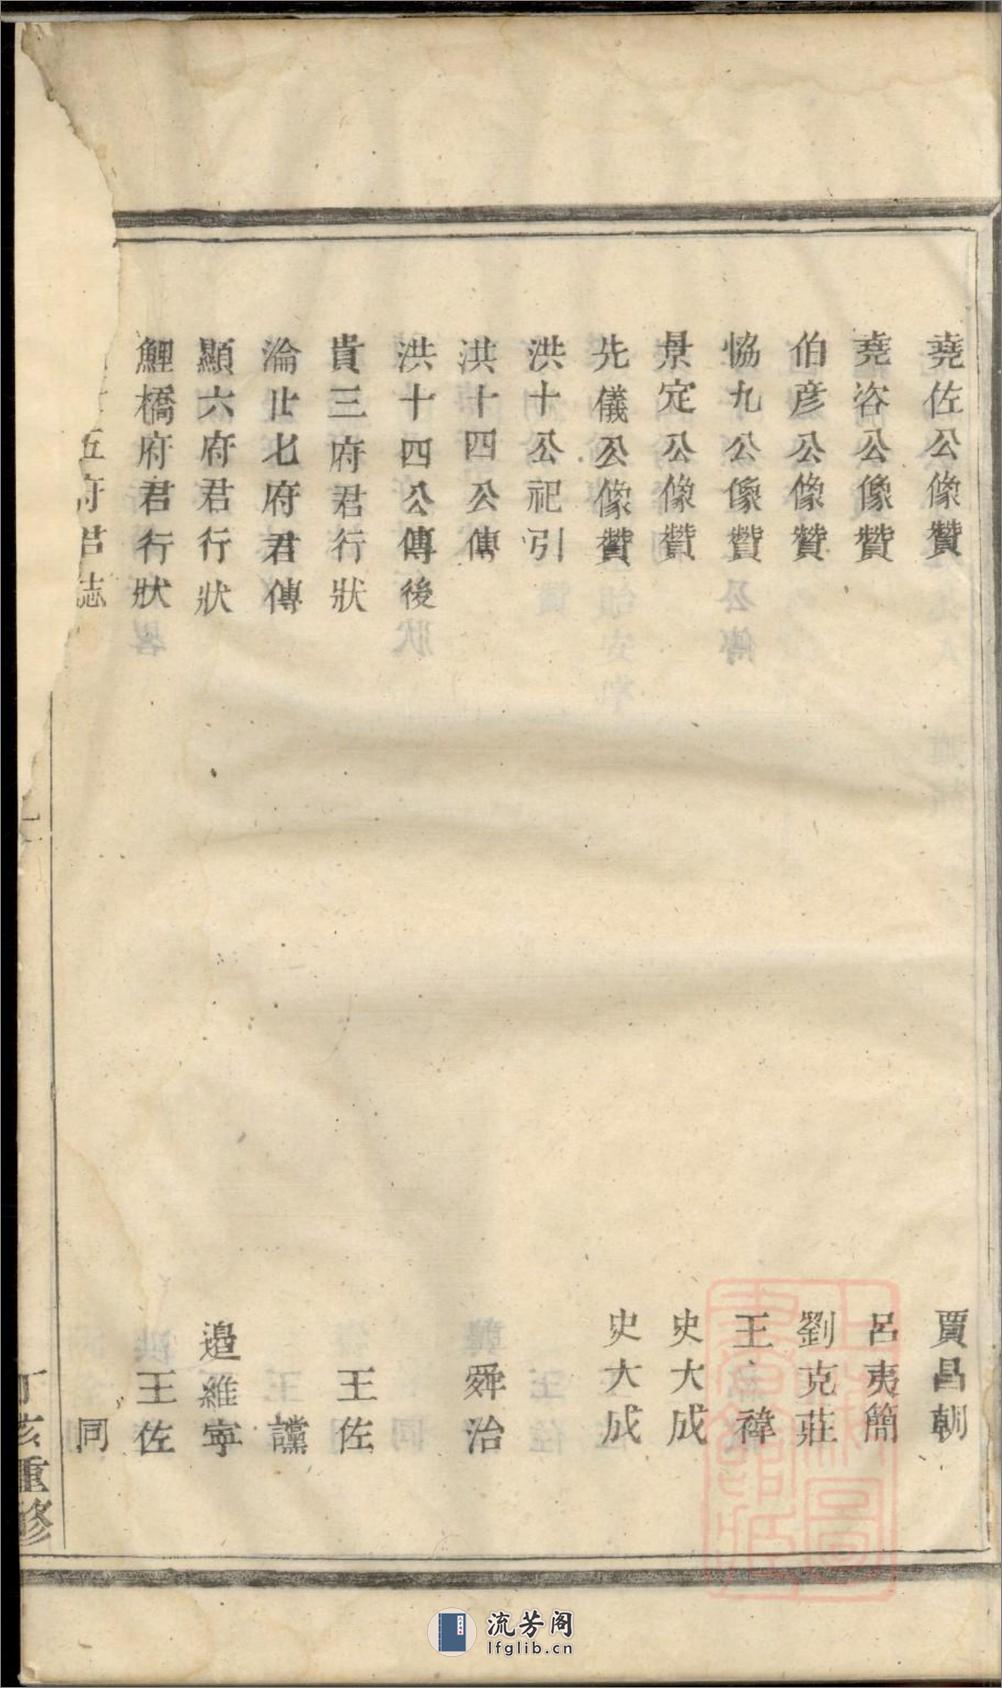 堯佐公像贊 賈昌朝
堯咨公像贊 呂夷簡
伯彥公像贊 劉克莊
恊九公像贊 王禕
景定公像贊 史大成
先儀公像贊 史大成
洪十公祀引
洪十四公傳 龔舜治
洪十四公傳後
貴三府君行狀 王佐
淪廿七府君傳 讜
顯六府君行狀 邉維寧
鯉橋府君行狀 王佐
五府君誌 同
丁亥重修
流芳阁
lfglib.cn